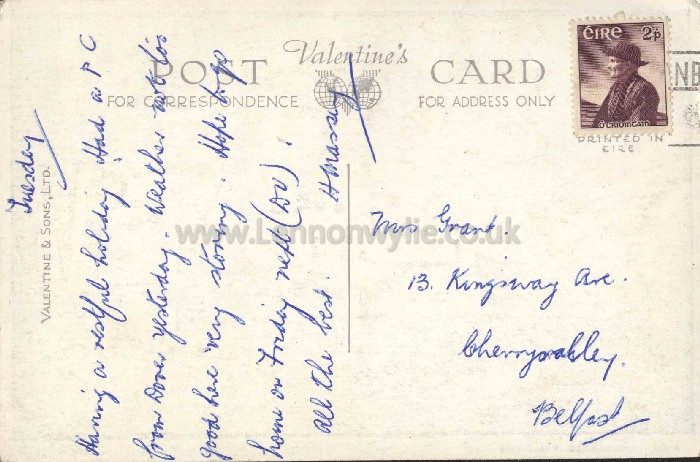 Valentine's
POST CARD
FOR CORRESPONDENCE
FOR ADDRESS ONLY
ÉIRE 2p
PRINTED IN
EIRE
VALENTINE & SONS, LTD.
www.Lennonwylie.co.uk
Tuesday
Having a restful holiday. Had a P C
from Dover yesterday. Weather not too
good here very stormy. Hope to go
home on Friday next (DV).
All the best.
H Massey
Mrs Grant.
13. Kingsway Ave.
Cherryvalley.
Belfast